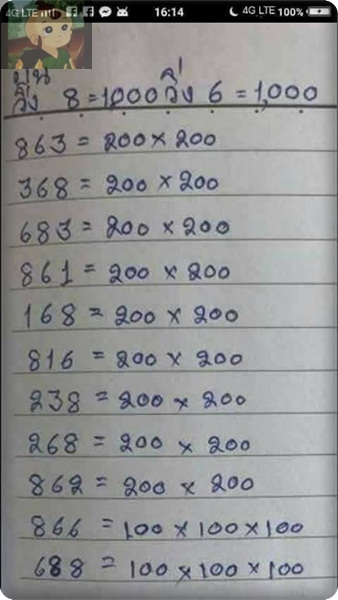 4G LTE 16:14 4G LTE 100%
บน ล่
วิ่ง 8 = 1000 วิ่ง 6 = 1,000
863 = 200 × 200
368 = 200 × 200
683 = 200 × 200
861 = 200 × 200
168 = 200 × 200
816 = 200 × 200
238 = 200 × 200
268 = 200 × 200
862 = 200 × 200
866 = 100 × 100 × 100
688 = 100 × 100 × 100